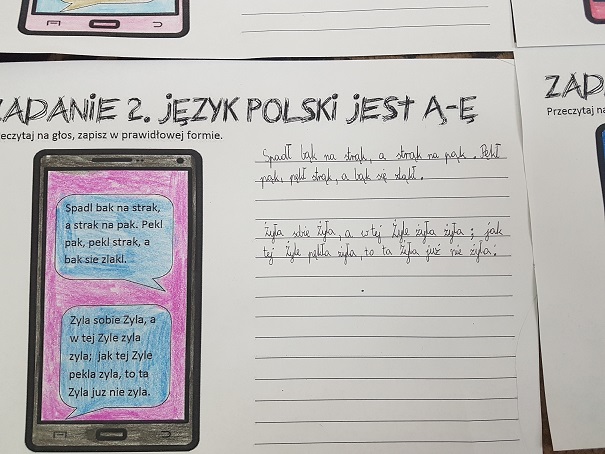 ZADANIE 2. JĘZYK POLSKI JEST Ą-Ę
ZADA
eczytaj na głos, zapisz w prawidłowej formie.
Przeczytaj na
Spadl bak na strak,
a strak na pak. Pekl
pak, pekl strak, a
bak sie zlakl.
Zyla sobie Zyla, a
w tej Zyle zyla
zyla; jak tej Zyle
pekla zyla, to ta
Zyla juz nie zyla.
Spadł bąk na strąk, a strąk na pąk. Pękł
pąk, pękł strąk, a bąk się zląkł.
Żyła sobie Żyła, a w tej Żyle żyła żyła; jak
tej Żyle pękła żyła to ta Żyła już nie żyła.